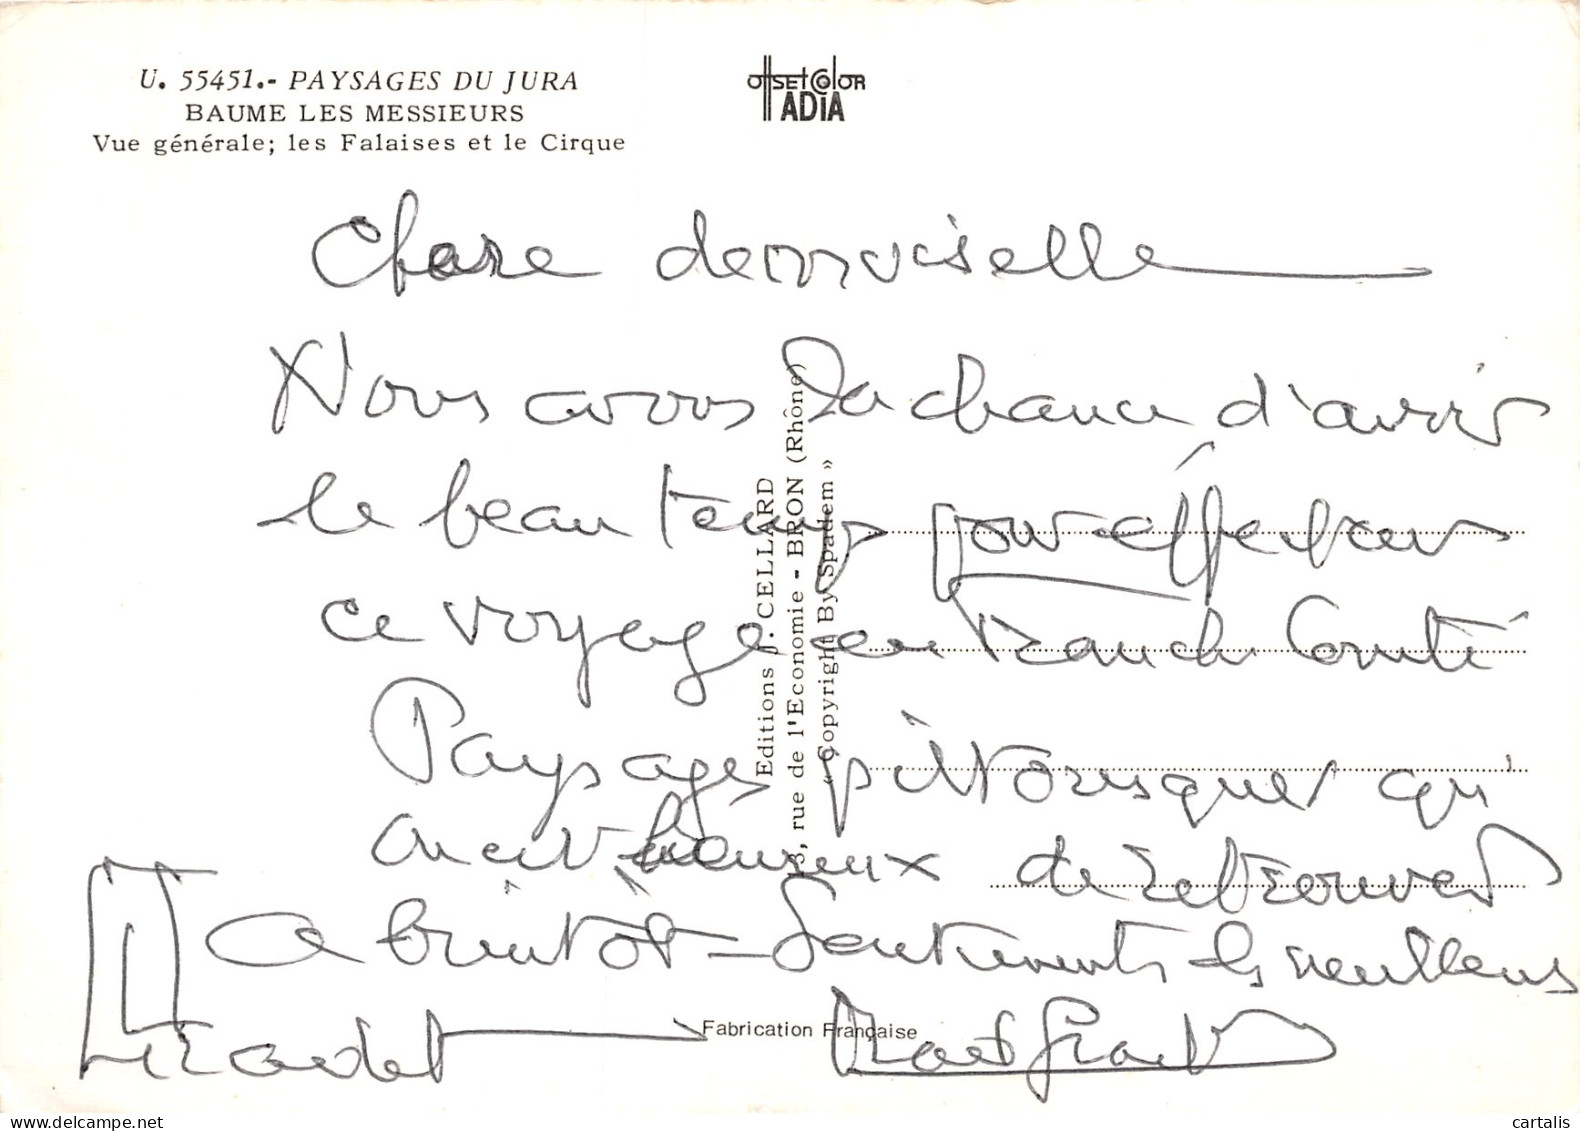 U. 55451.- PAYSAGES DU JURA
BAUME LES MESSIEURS
Vue générale; les Falaises et le Cirque
OffSEt Color
ADIA
Chere demoiselle
Nous avons la chance d'avoir
le beau temps pour effectuer
ce voyage en Franche Comté
Paysages pittoresques qu'
on est heureux de retrouver
A bientôt - Sentiments les meilleurs
Editions J. CELLARD
3, rue de l'Economie - BRON (Rhône)
« Copyright By Spadem »
Fabrication Française
cartalis